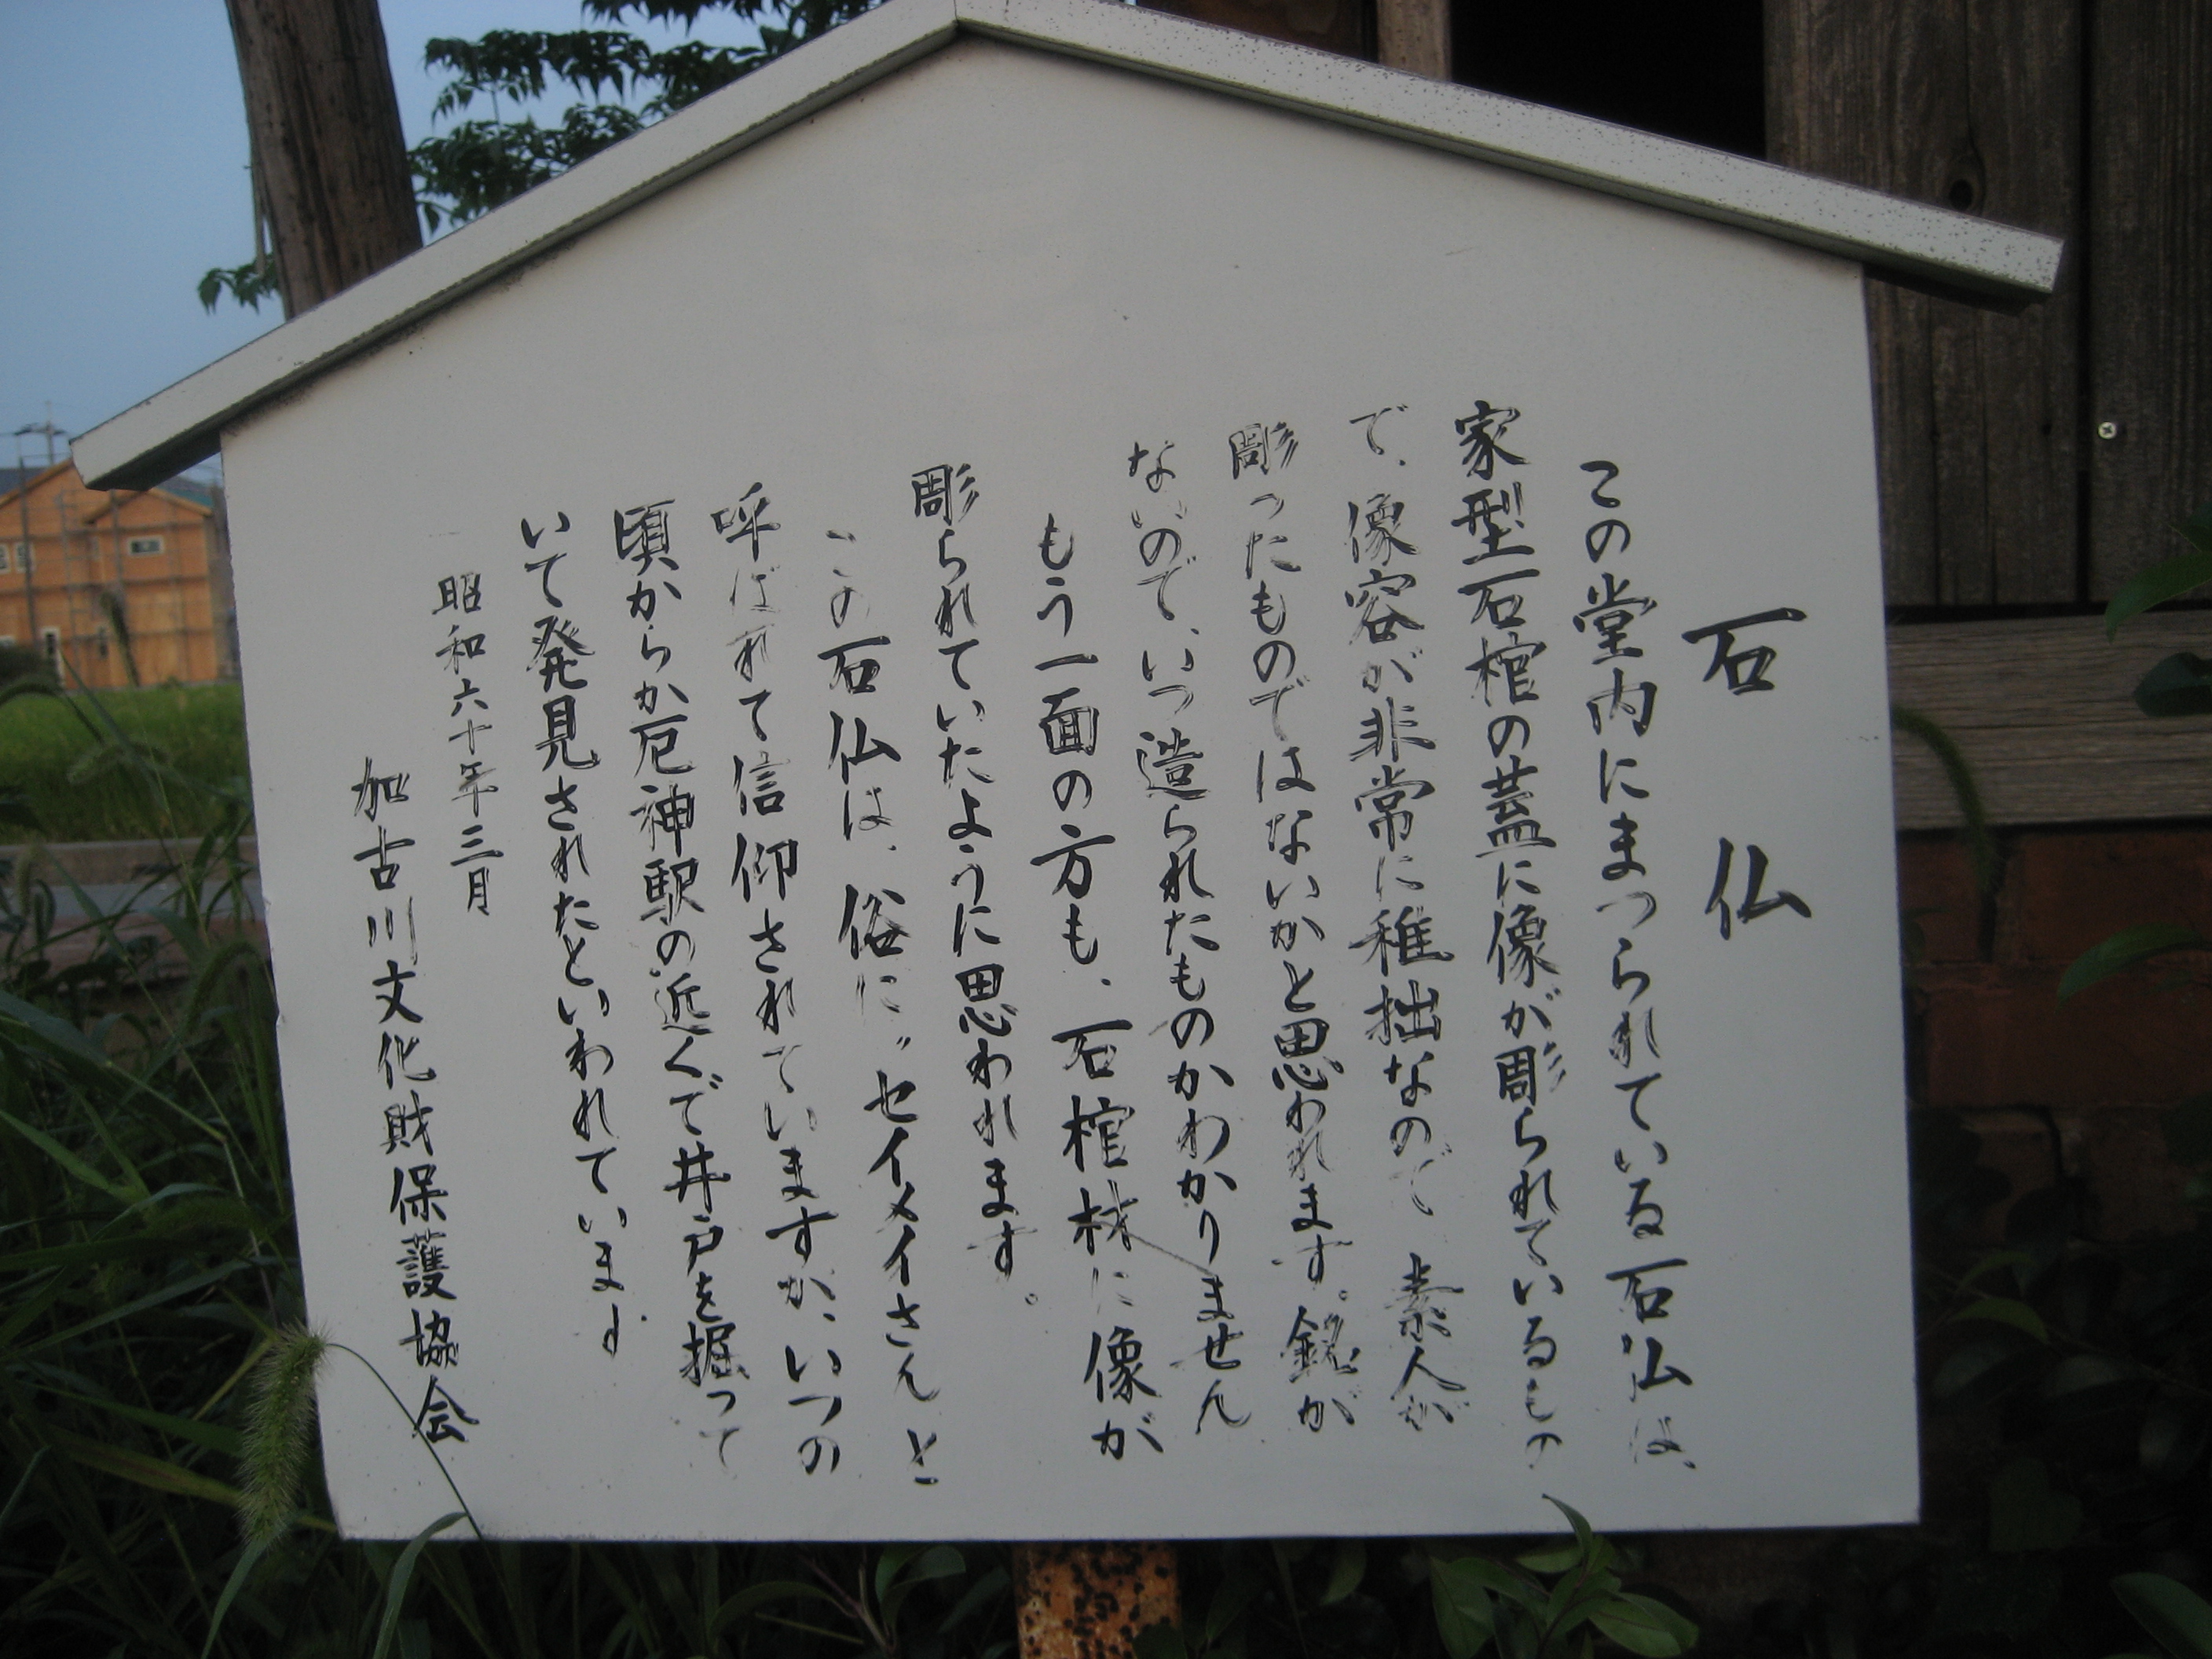 石仏
この堂内にまつられている石仏は、
家型石棺の蓋に像が彫られているもの
で、像容が非常に稚拙なので素人が
彫ったものではないかと思われます。銘が
ないので、いつ造られたものかわかりません
もう一面の方も、石棺材に像が
彫られていたように思われます。
この石仏は、俗に〃セイメイさんと
呼ばれて信仰されていますが、いつの
頃からか厄神駅の近くで井戸を掘って
いて発見されたといわれています
昭和六十年三月
加古川文化財保護協会